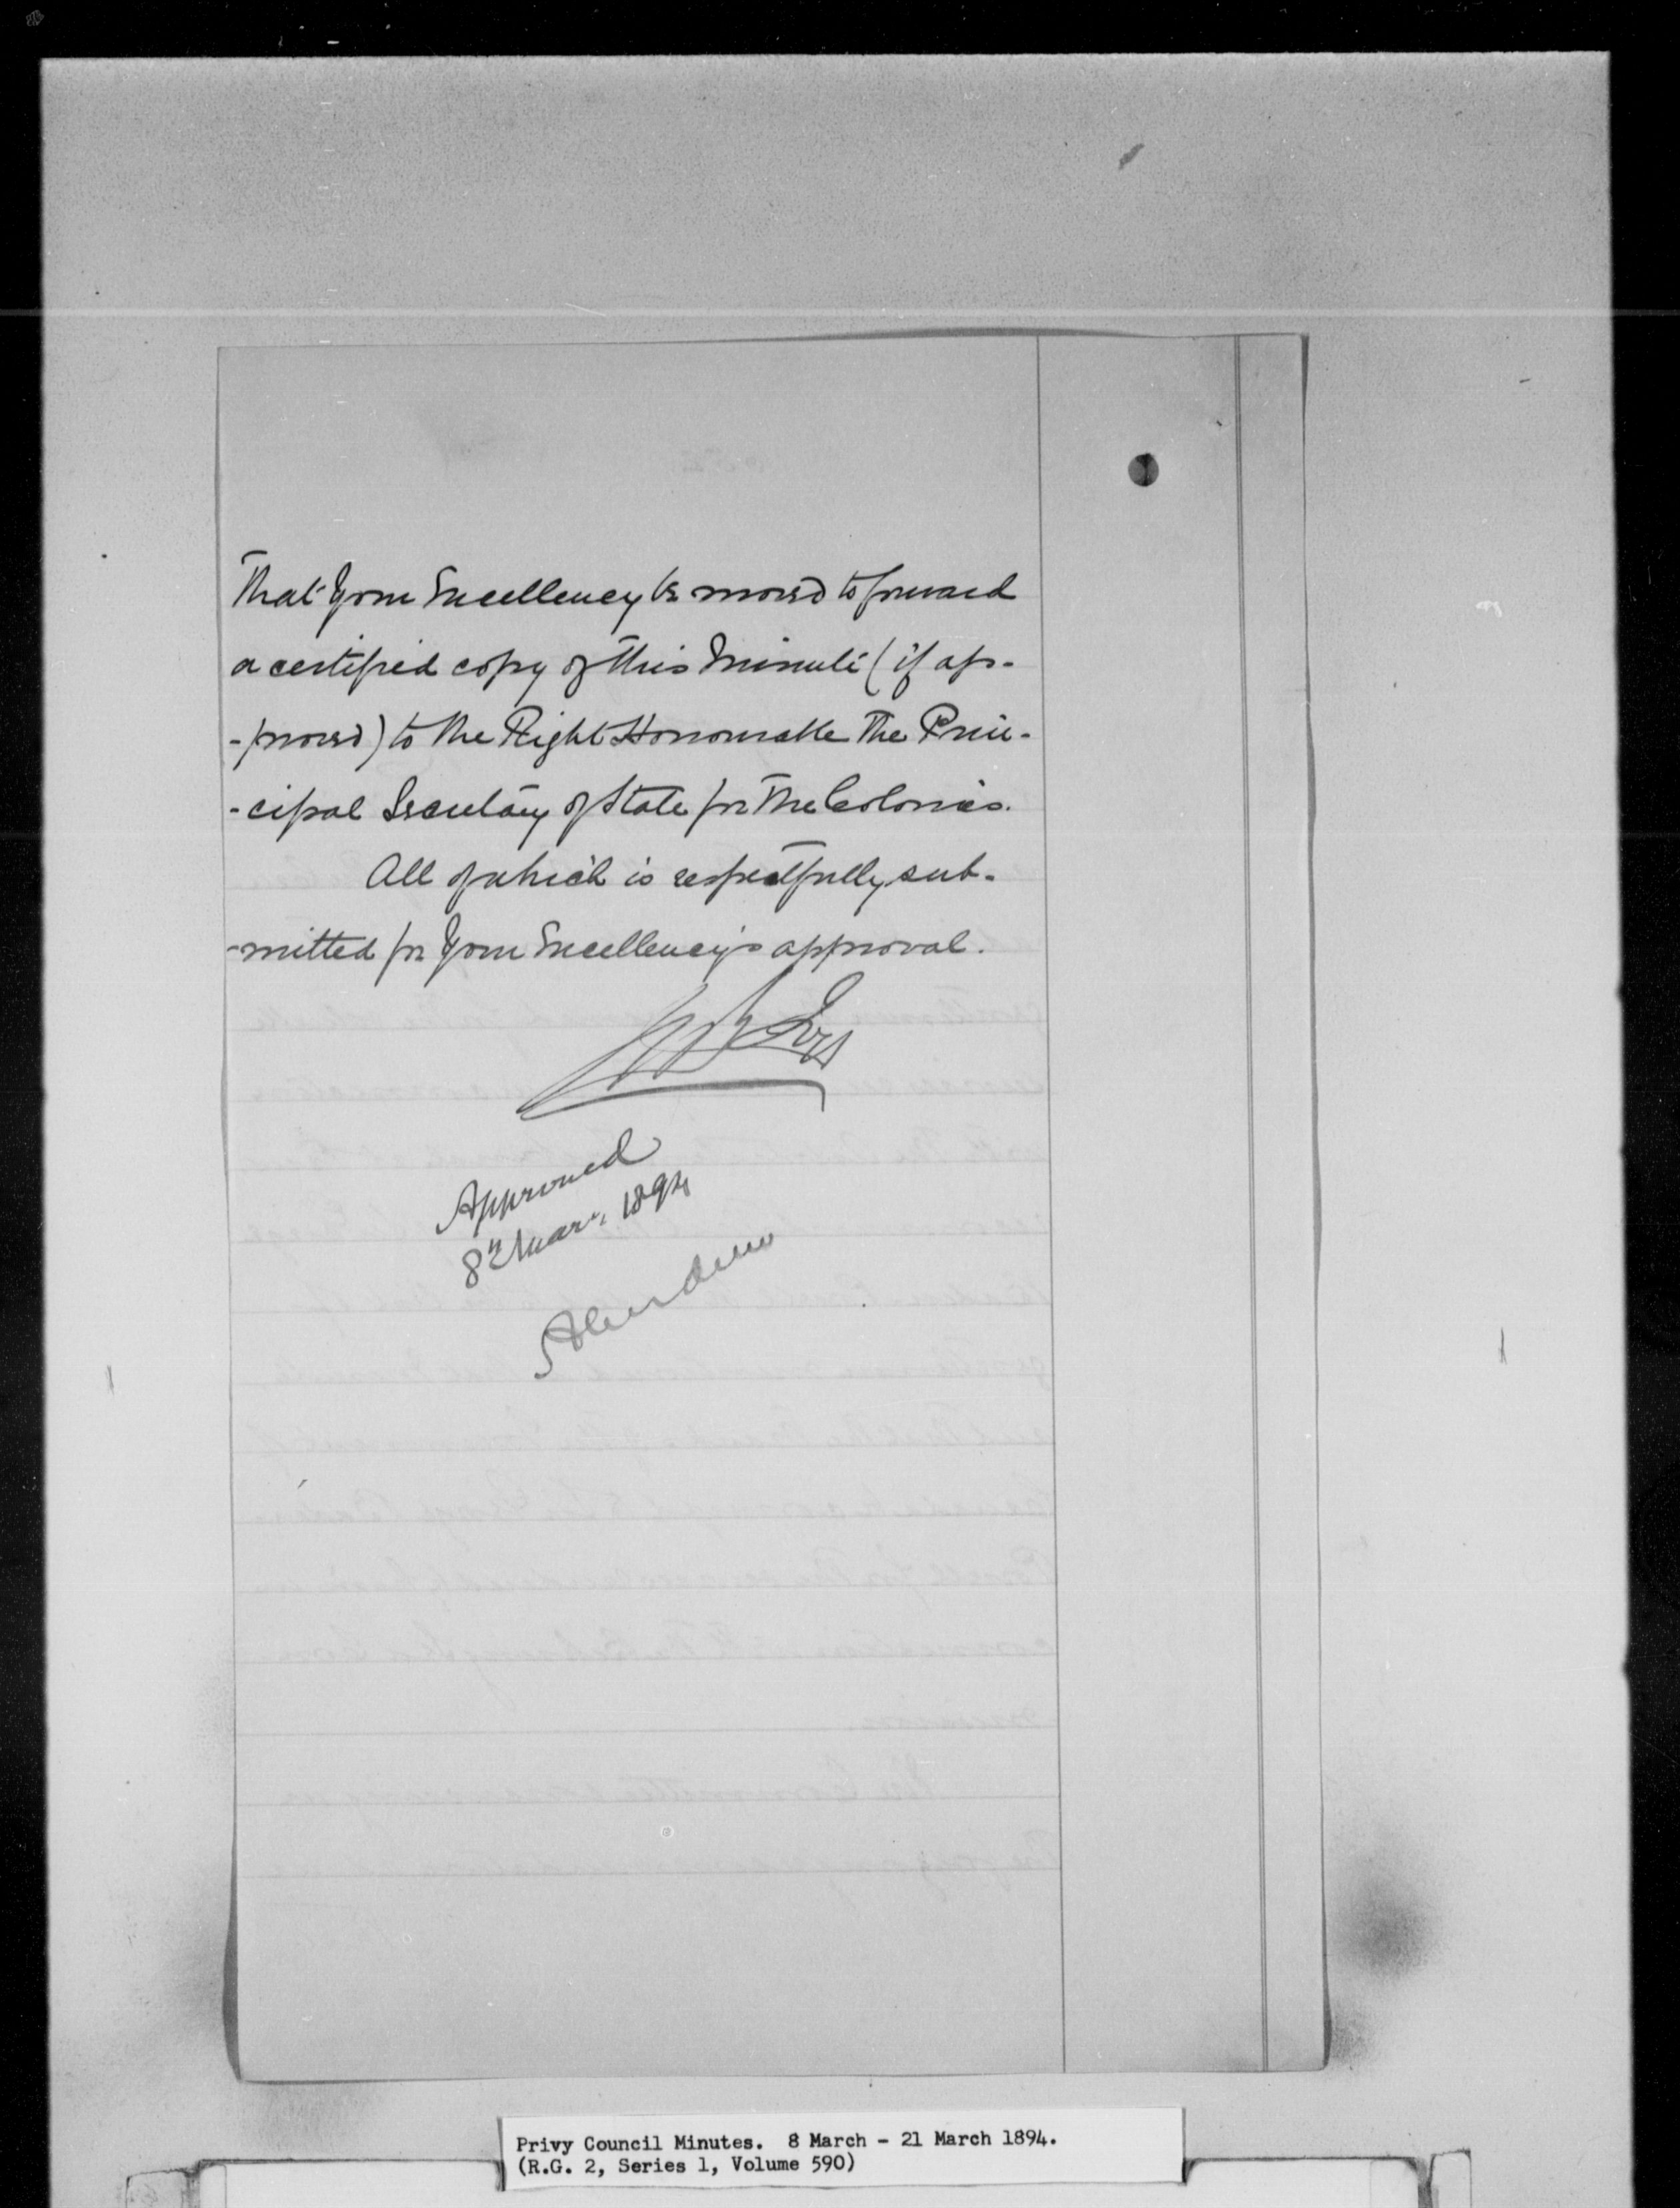 That Your Excellency be moved to forward
a certified copy of this Minute (if ap-
-proved) to the Right Honourable the Prin-
-cipal Secretary of State for the Colonies.
All of which is respectfully sub-
-mitted for Your Excellency's approval.
Approved
8th Mar. 1894
Aberdeen
Privy Council Minutes. 8 March - 21 March 1894.
(R.G. 2, Series 1, Volume 590)